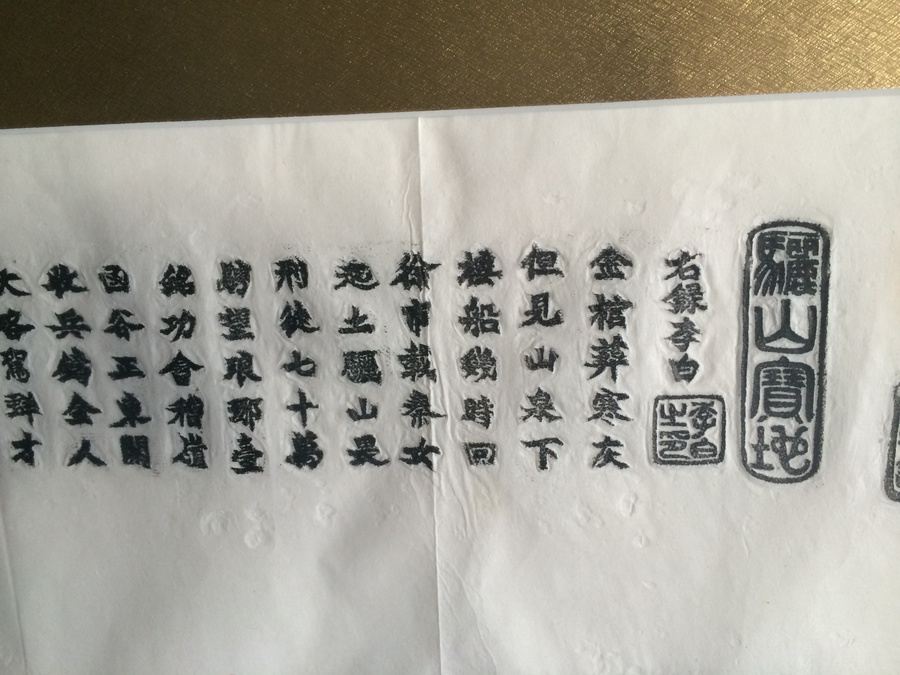 大略駕群才
收兵鑄金人
函谷正東開
銘功會稽嶺
騁望琅琊臺
刑徒七十萬
起土驪山隈
徐市載秦女
樓船幾時回
但見山泉下
金棺葬寒灰
右錄李白
李白之印
驪山寶地